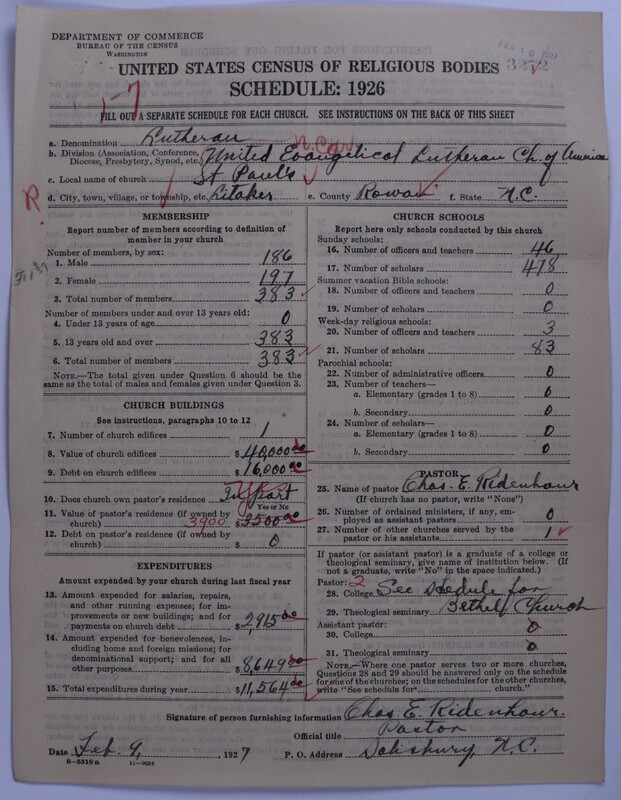 DEPARTMENT OF COMMERCE
BUREAU OF THE CENSUS
WASHINGTON
3272
UNITED STATES CENSUS OF RELIGIOUS BODIES
SCHEDULE: 1926
1-7
FILL OUT A SEPARATE SCHEDULE FOR EACH CHURCH. SEE INSTRUCTIONS ON THE BACK OF THIS SHEET
a. Denomination Lutheran
b. Division (Association, Conference, Diocese, Presbytery, Synod, etc.) United Evangelical Lutheran Ch. of America
c. Local name of church St Paul's
R
d. City, town, village, or township, etc. Litaker e. County Rowan f. State N.C.
MEMBERSHIP
Report number of members according to definition of
member in your church
Number of members, by sex:
1. Male 186
2. Female 197
3. Total number of members 383
Number of members under and over 13 years old:
4. Under 13 years of age 0
5. 13 years old and over 383
6. Total number of members 383
NOTE.—The total given under Question 6 should be
same as the total of males and females given under Question 3.
CHURCH BUILDINGS
See instructions, paragraphs 10 to 12
7. Number of church edifices 1
8. Value of church edifices $40,000.00
9. Debt on church edifices $16,000.00
10. Does church own pastor's residence In part
Yes or No
11. Value of pastor's residence (if owned by
church) 3900 $3500.00
12. Debt on pastor's residence (if owned by
church) $ 0
EXPENDITURES
Amount expended by your church during last fiscal year
13. Amount expended for salaries, repairs,
and other running expenses; for im-
provements or new buildings; and for
payments on church debt $2,915.00
14. Amount expended for benevolences,
including home and foreign missions; for
denominational support; and for all
other purposes $8,649.00
15. Total expenditures during year $11,564.00
CHURCH SCHOOLS
Report here only schools conducted by this church
Sunday schools:
16. Number of officers and teachers 46
17. Number of scholars 478
Summer vacation Bible schools:
18. Number of officers and teachers 0
19. Number of scholars 0
Week-day religious schools:
20. Number of officers and teachers 3
21. Number of scholars 83
Parochial schools:
22. Number of administrative officers 0
23. Number of teachers—
a. Elementary (grades 1 to 8) 0
b. Secondary 0
24. Number of scholars—
a. Elementary (grades 1 to 8) 0
b. Secondary 0
PASTOR
25. Name of pastor Chas. E. Ridenhour
(If church has no pastor, write "None")
26. Number of ordained ministers, if any, em-
ployed as assistant pastors 0
27. Number of other churches served by the
pastor or his assistants 1
If pastor (or assistant pastor) is a graduate of a college or
theological seminary, give name of institution below. (If
not a graduate, write "No" in the space indicated.)
Pastor: 2
28. College See Schedule for
29. Theological seminary Bethel Church
Assistant pastor:
30. College 0
31. Theological seminary 0
NOTE.—Where one pastor serves two or more churches,
Questions 28 and 29 should be answered only on the schedule
for one of the churches; on the schedules for the other churches,
write "See schedule for church."
Signature of person furnishing information Chas E. Ridenhour.
Official title Pastor
Date Feb. 9, 1927 P. O. Address Salisbury, N.C.